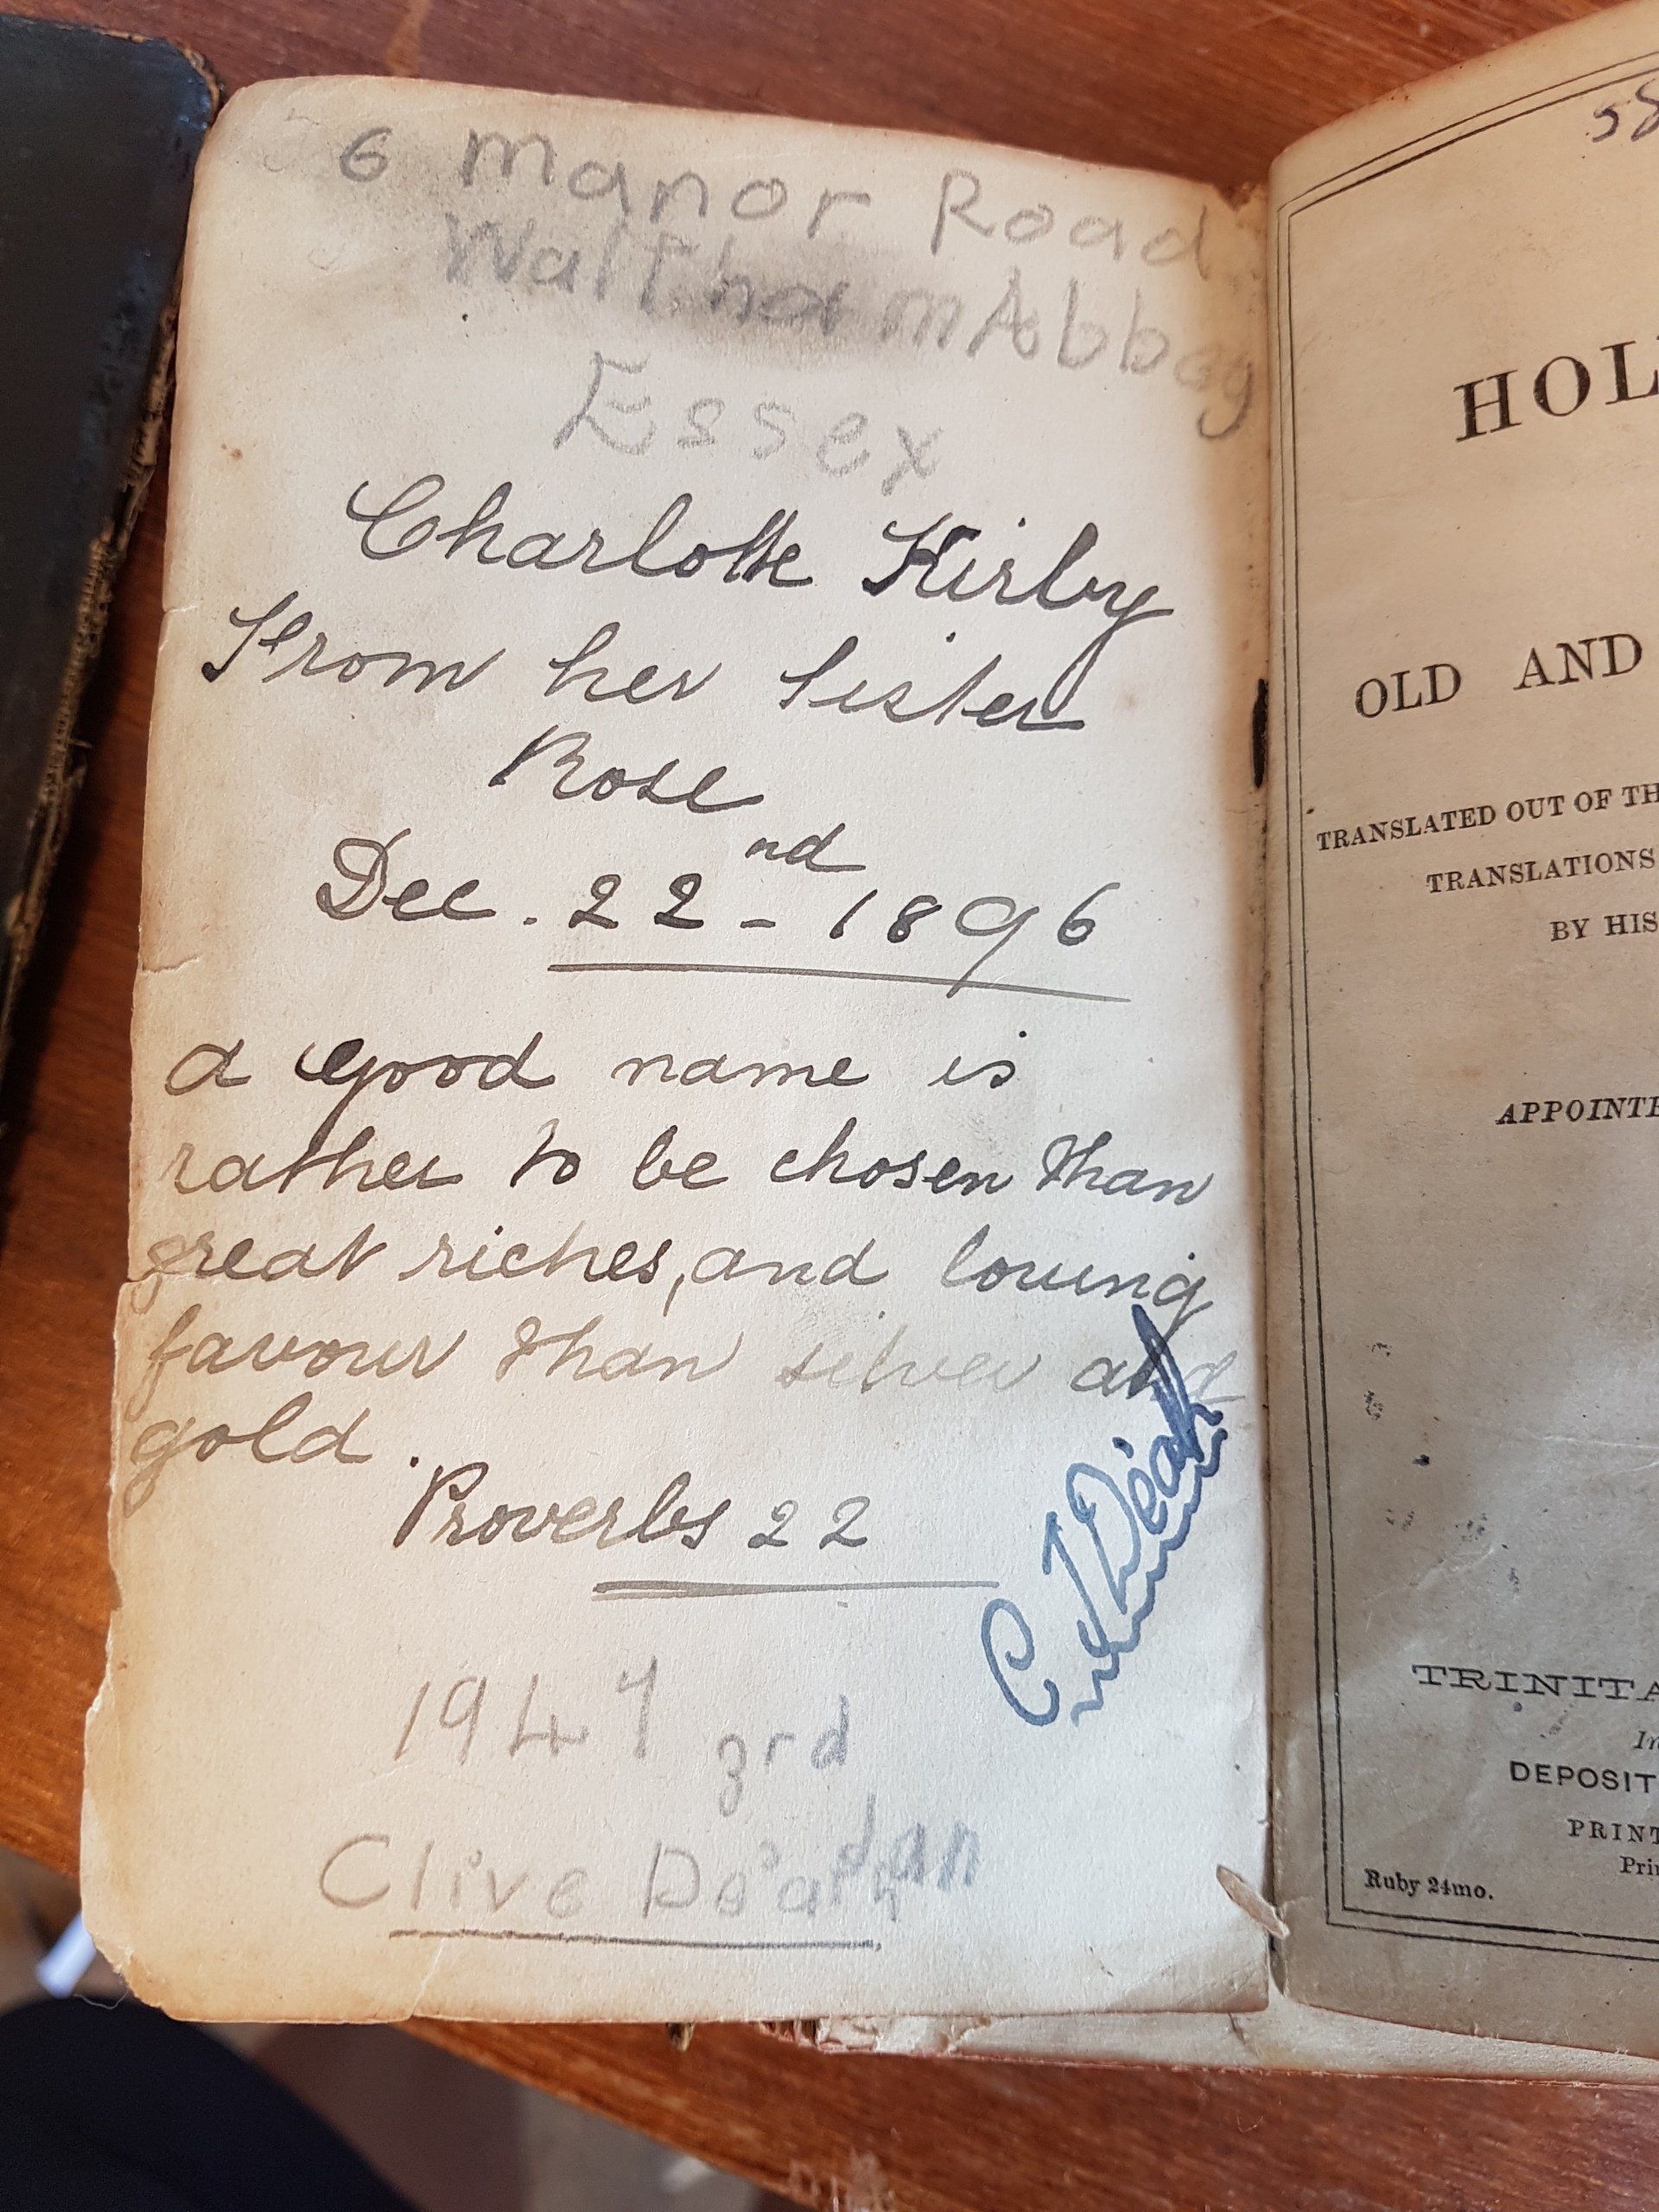 6 Manor Road
Waltham Abbey
Essex
Charlotte Kirby
From her Sister
Rose
Dec. 22nd - 1896
a good name is
rather to be chosen than
great riches, and loving
favour than silver and
gold.
Proverbs 22
C. Death
1947 3rd
Clive De'ath
58
HOL
OLD AND
TRANSLATED OUT OF TH
TRANSLATIONS
BY HIS
APPOINTE
TRINITA
In
DEPOSIT
PRINT
Prin
Ruby 24mo.